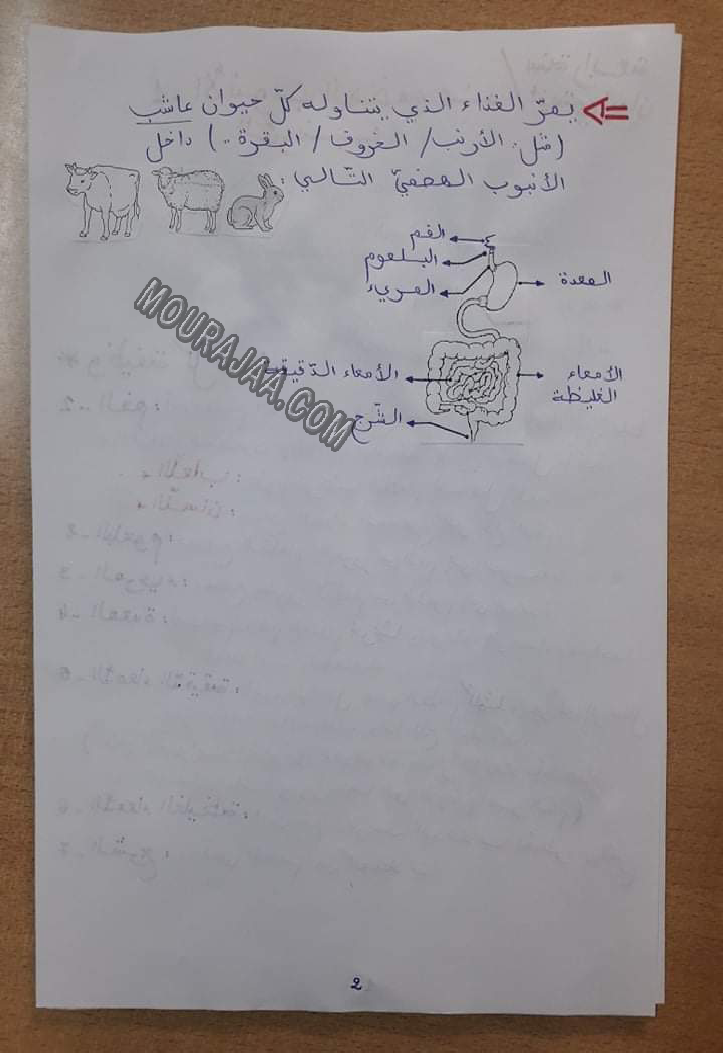 يمرّ الغذاء الذي يتناوله كلّ حيوان عاشب
(مثل: الأرنب/ الخروف/ البقرة..) داخل
الأنبوب الهضميّ التّالي:
الفم
البلعوم
المعدة
المريء
MOURAJAA.COM
الأمعاء الدّقيقة
الأمعاء
الغليظة
الشّرج
2